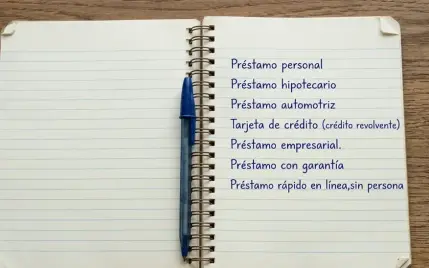 Préstamo personal
Préstamo hipotecario
Préstamo automotriz
Tarjeta de crédito (crédito revolvente)
Préstamo empresarial.
Préstamo con garantía
Préstamo rápido en línea,sin persona